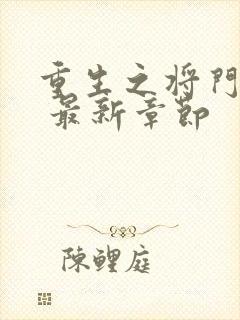 重生之将門
最新章節
陳鯉庭